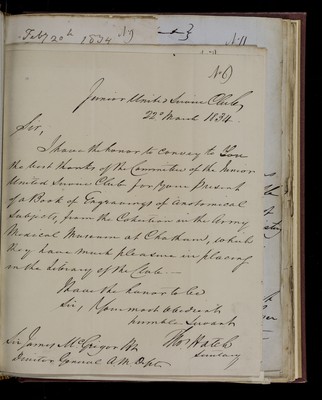 Feby 20th 1834 No 9
No 11
No 6)
Junior United Service Club,
22d March 1834.
Sir,
I have the honor to convey to You
the best thanks of the Committee of the Junior
United Service Club for Your Present
of a Book of Engravings of anatomical
Subjects, from the Collection in the Army
Medical Museum at Chatham, which
they have much pleasure in placing
in the Library of the Club.—
I have the honor to be
Sir, Your most obedient
humble Servant
Thos Hatch
Secretary
Sir James McGrigor Bt
Director General A. M. Dept.